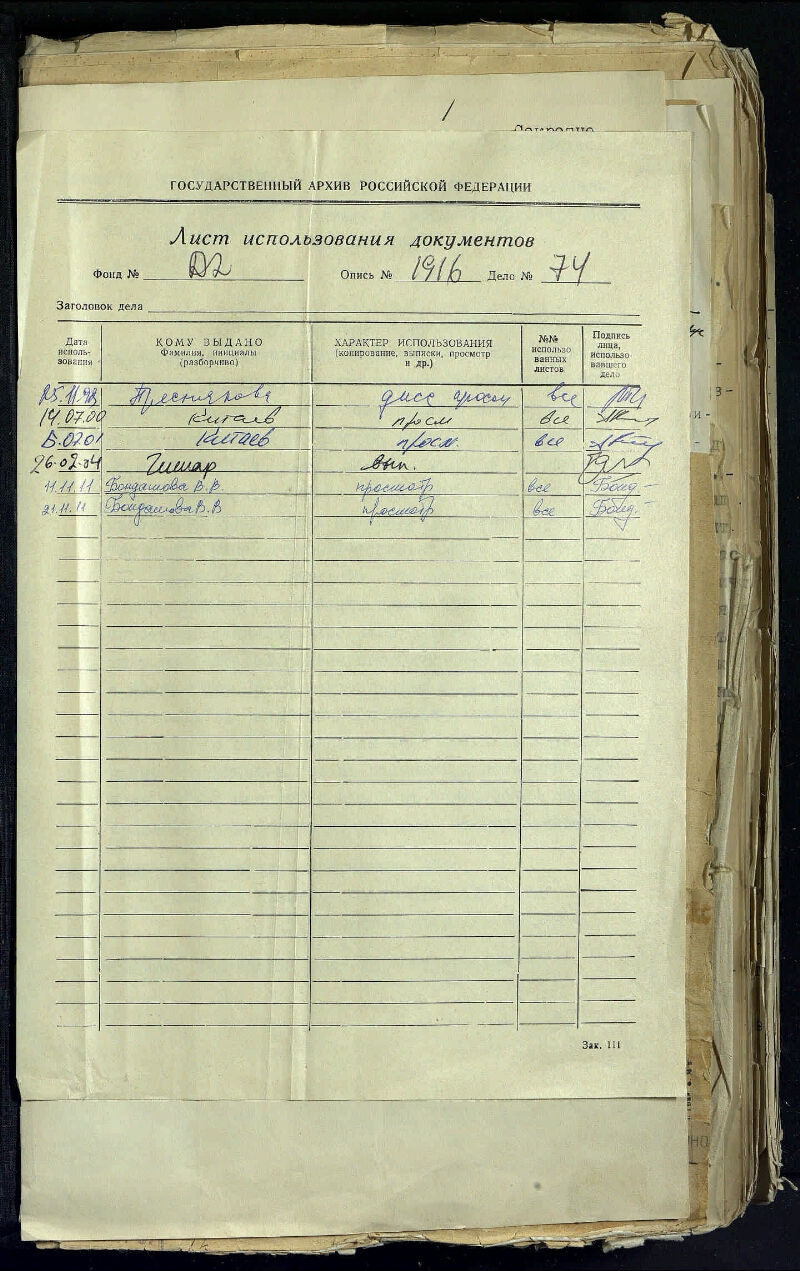 /
Секретно
ГОСУДАРСТВЕННЫЙ АРХИВ РОССИЙСКОЙ ФЕДЕРАЦИИ
Лист использования документов
Фонд № Д2 Опись № 1916 Дело № 74
Заголовок дела
Дата исполь- зования КОМУ ВЫДАНО Фамилия, инициалы (разборчиво) ХАРАКТЕР ИСПОЛЬЗОВАНИЯ (копирование, выписки, просмотр и др.) №№ использо ванных листов Подпись лица, использо вавшего дело
25.11.98 Преснякова все
14.07.00 Китаев просм все
5.02.01 Китаев просм. все
26.02.04 вып.
11.11.11 Бондашова В.В просмотр все Бонд.-
21.11.11 Бондашова В.В просмотр все Бонд.-
Зак. 111